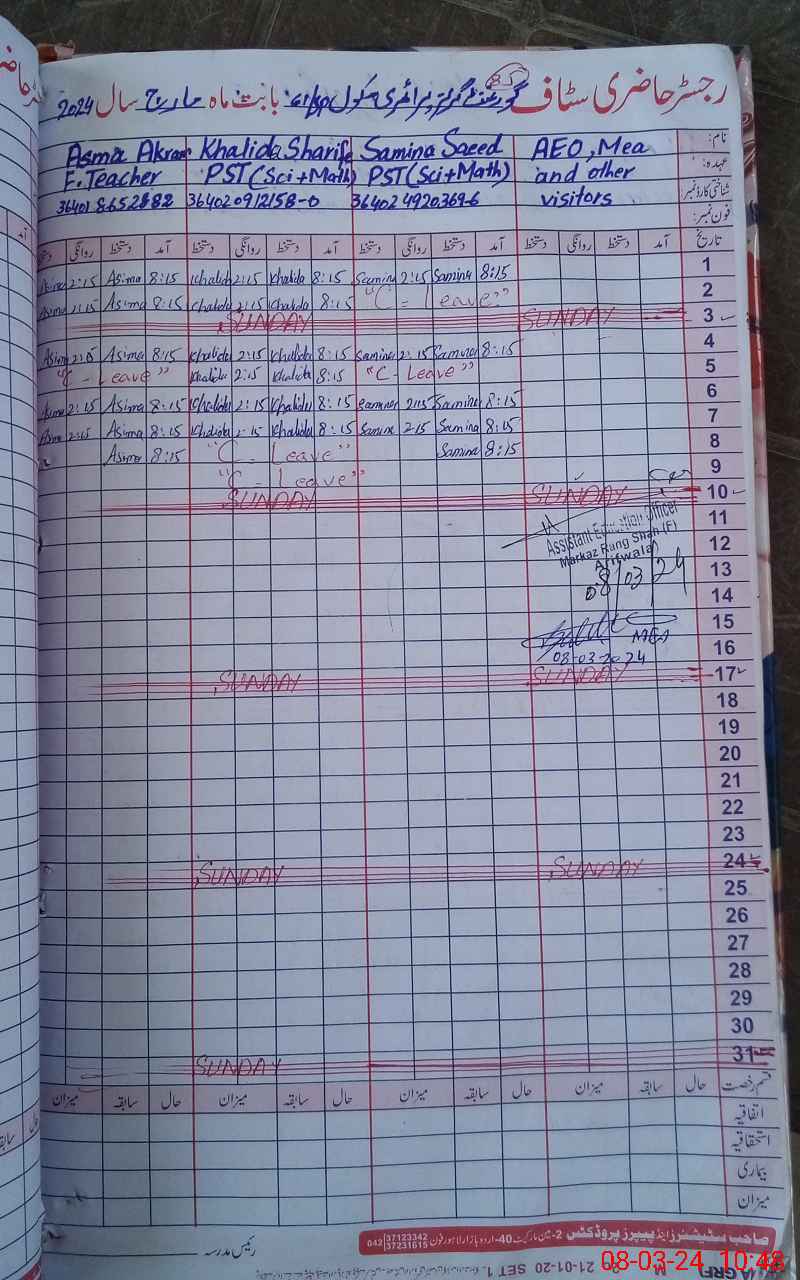 رجسٹر حاضری سٹاف گورنمنٹ گرلز پرائمری سکول 61/SP بابت ماہ مارچ سال 2024
نام: Samina Saeed Khalida Sharif Asma Akram AEO, Mea
عہدہ: PST(Sci+Math) PST(Sci+Math) E.Teacher and other
شناختی کارڈ نمبر: 36402 0912158-0 visitors
فون نمبر:
تاریخ آمد دستخط روانگی دستخط آمد دستخط روانگی دستخط آمد دستخط روانگی دستخط آمد دستخط روانگی
1 8:15 Samina 2:15 Samina 8:15 Khalida 2:15 Khalida 8:15 Asima 2:15
2 "C - Leave" 8:15 Khalida 2:15 Khalida 8:15 Asima 2:15
3 SUNDAY SUNDAY
4 8:15 Samina 2:15 Samina 8:15 Khalida 2:15 Khalida 8:15 Asima
5 "C - Leave" 8:15 Khalida 2:15 Khalida "C - Leave"
6 8:15 Samina 2:15 Samina 8:15 Khalida 2:15 Khalida 8:15 Asima 2:15
7 8:15 Samina 2:15 Samina 8:15 Khalida 2:15 Khalida 8:15 Asima 2:15
8 8:15 Samina "C - Leave" 8:15 Asima
9 "C - Leave"
10 SUNDAY SUNDAY
11
Assistant Education Officer
12
Markaz Rung Shah (F)
Arifwala
13
08/03/24
14
15
MEA
16
08-03-2024
17 SUNDAY SUNDAY
18
19
20
21
22
23
24 SUNDAY SUNDAY
25
26
27
28
29
30
31 SUNDAY
قسم رخصت حال سابقہ میزان حال سابقہ میزان حال سابقہ میزان حال سابقہ میزان
اتفاقیہ
استحقاقیہ
بیماری
میزان
صاحب سٹیشنرز اینڈ پیپرز پروڈکٹس 2-مین مارکیٹ 40-اردو بازار لاہور فون 042 37123342 37231615
رئیس مدرسہ
08-03-24 10:48